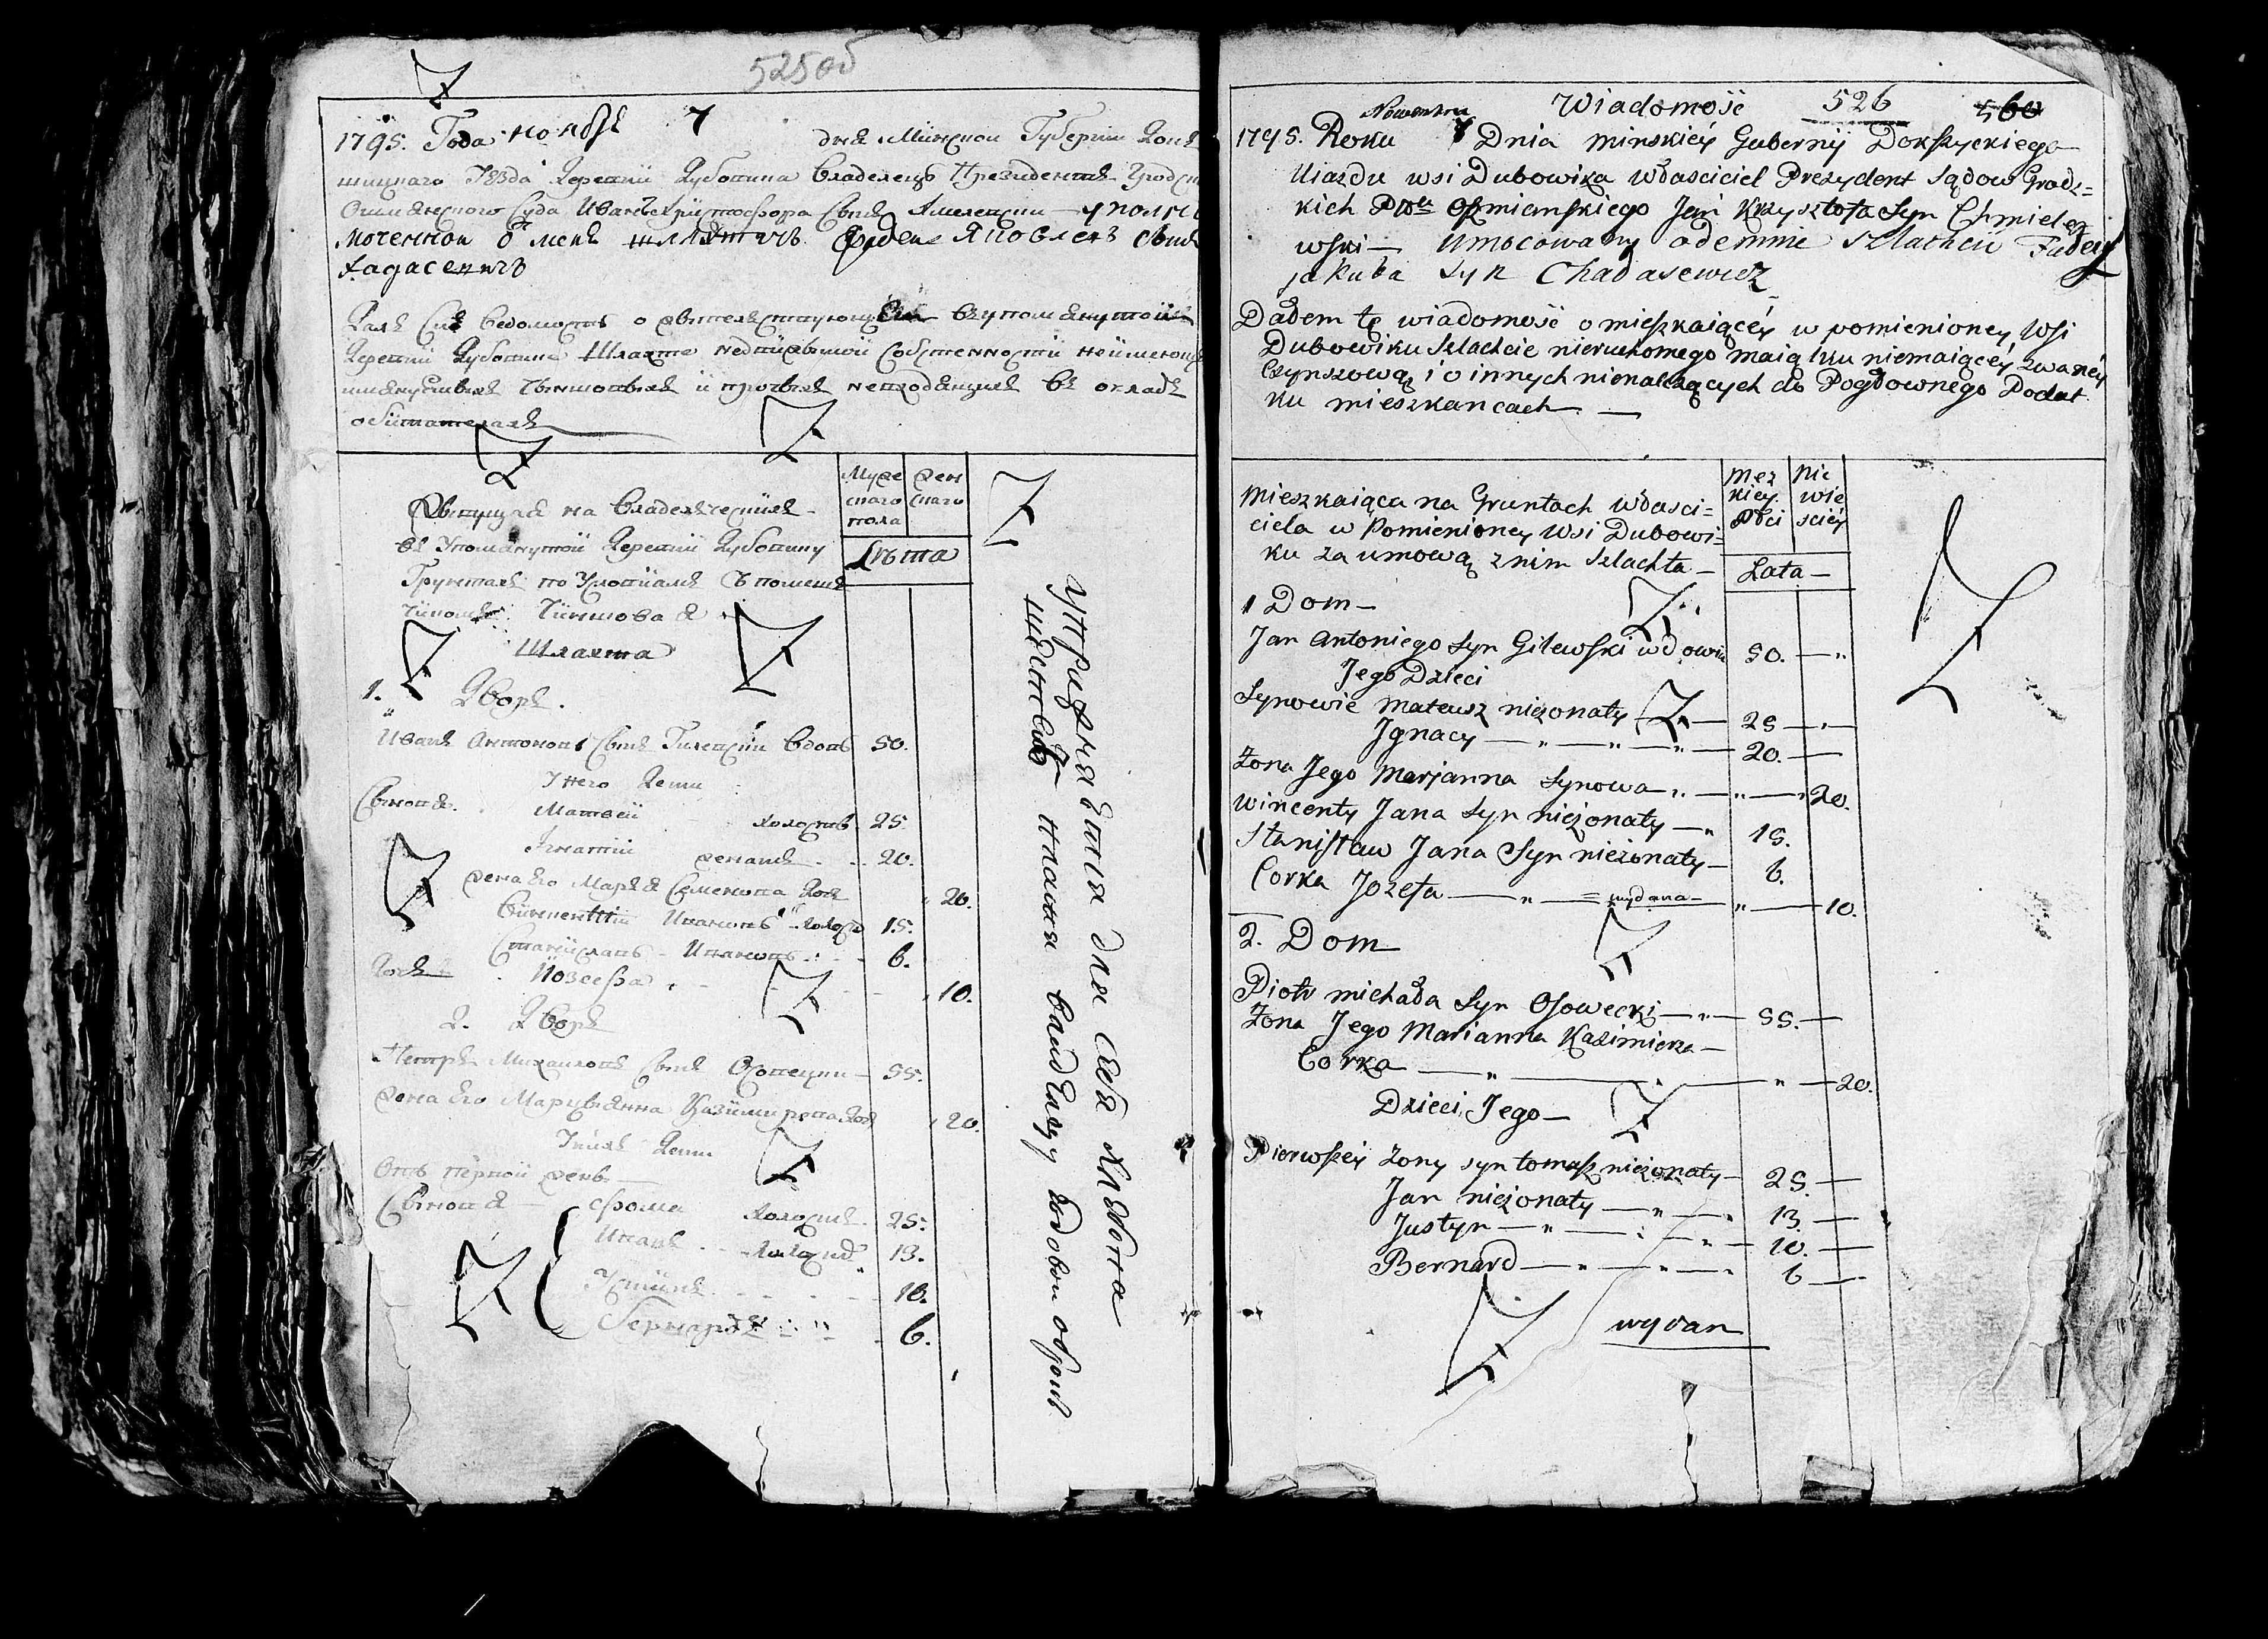 525об
1795. Года ноября 7 дня Минской Губернии Док
шицкаго Уезда Деревни Дубовика Владелецъ Президентъ Гродск
Ошмянского Суда Иванъ Христофора сынъ Хмелевски уполно
моченной о мене шляхтичъ Фадей Яковлевъ сынъ
Хадасевичъ
Далъ сию ведомость о жителствующей въ упомянутой
Деревни Дубовике Шляхте недвижимой собственности неимеющ
чиншовыхъ и прочихъ неходящихъ въ окладъ
обитателяхъ
Живущая на Владелческихъ
въ Упомянутой Деревни Дубовику
Грунтахъ по Условиамъ съ помещи
Чиншовая
Шляхта
Муже
скаго
пола
жен
скаго
Лѣта
1. Дворъ.
Иванъ Антоновъ сынъ Гилевски вдовъ 50.
У него Дети
Сыновя. Матвей холостъ 25.
Игнатий женатъ 20.
жена его Маря Семенова доч 20.
Винцентий Ивановъ холост 15.
Станиславъ Ивановъ 6.
Дочь Иозефа 10.
2. Дворъ
Петръ Михаиловъ сынъ Осовецки 55.
жена его Марианна Казимирова доч 20.
У нихъ Дети
Отъ первой жены
Сыновя фома холостъ 25.
Иванъ холостъ 13.
Устинъ 10.
Бернардъ 6.
Употребляетъ для себя хлебопа
шество платя владелцу годовой оброкъ
Wiadomość 526 560
1795. Roku Nowembra 7 Dnia Minskiey Gubernij Dokszyckiego
Uiazdu wsi Dubowika Własciciel Prezydent Sądow Grodz=
kich Ptu Oszmianskiego Jan Krzysztofa Syn Chmielez
wski — Umocowany odemnie Szlachcic Fadey
jakuba Syn Chadasewicz
Dałem tę wiadomość o mieszkaiącey w pomienioney Wsi
Dubowiku Szlachcie nieruchomego maiątku niemaiącey zwaney
Czynszową i o innych nienalezących do Pogłownego Podat
ku mieszkancach —
Mieszkaiąca na Gruntach Własci=
ciela w Pomienioney Wsi Dubowi=
ku za umową z nim Szlachta —
Męz
kiey
Płci
Nie
wie
sciey
Lata —
1 Dom —
Jan Antoniego Syn Gilewski wdowiec 50. — "
Jego Dzieci
Synowie Mateusz nieżonaty — 25 — " —
Jgnacy — " — " — " — 20. —
Zona Jego Marjanna Synowa — " — " — " 20.
Wincenty Jana Syn nieżonaty — " 15.
Stanisław Jana Syn nieżonaty — 6.
Corka Jozefa — " — = wydana — " — 10.
2. Dom —
Piotr Michała Syn Osowecki — " — 55. —
Zona Jego Marianna Kazimierza —
Corka — " — " — " — 20.
Dzieci Jego —
Pierwszey zony syn tomasz nieżonaty — 25. —
Jan nieżonaty — " — " 13. —
Justyn — " — : — " — 10. —
Bernard — " — " — " 6 —
wydan